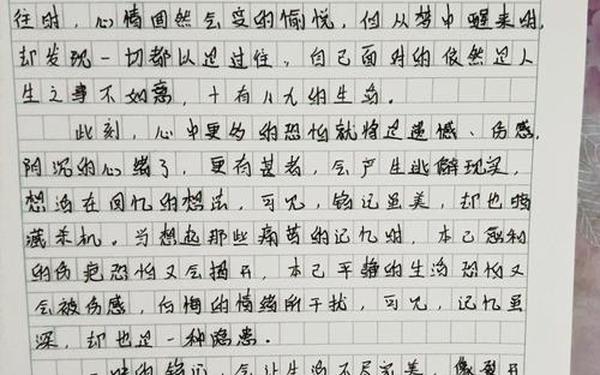 往时，心情固然会变的愉悦，但从梦中醒来时，
却发现一切都以是过往，自己面对的依然是人
生之事不如意，十有八九的生活。
此刻，心中更多的恐怕就将是遗憾、伤感，
阴沉的心绪了，更有甚者，会产生逃僻现实，
想活在回忆的想法，可见，铭记虽美，却也暗
藏杀机。当想起那些痛苦的记忆时，本已愈和
的伤疤恐怕又会揭开，本已平静的生活恐怕又
会被伤感，后悔的情绪所干扰，可见，记忆虽
深，却也是一种隐患。
一味的铭记，会让生活不尽完美，像裂开